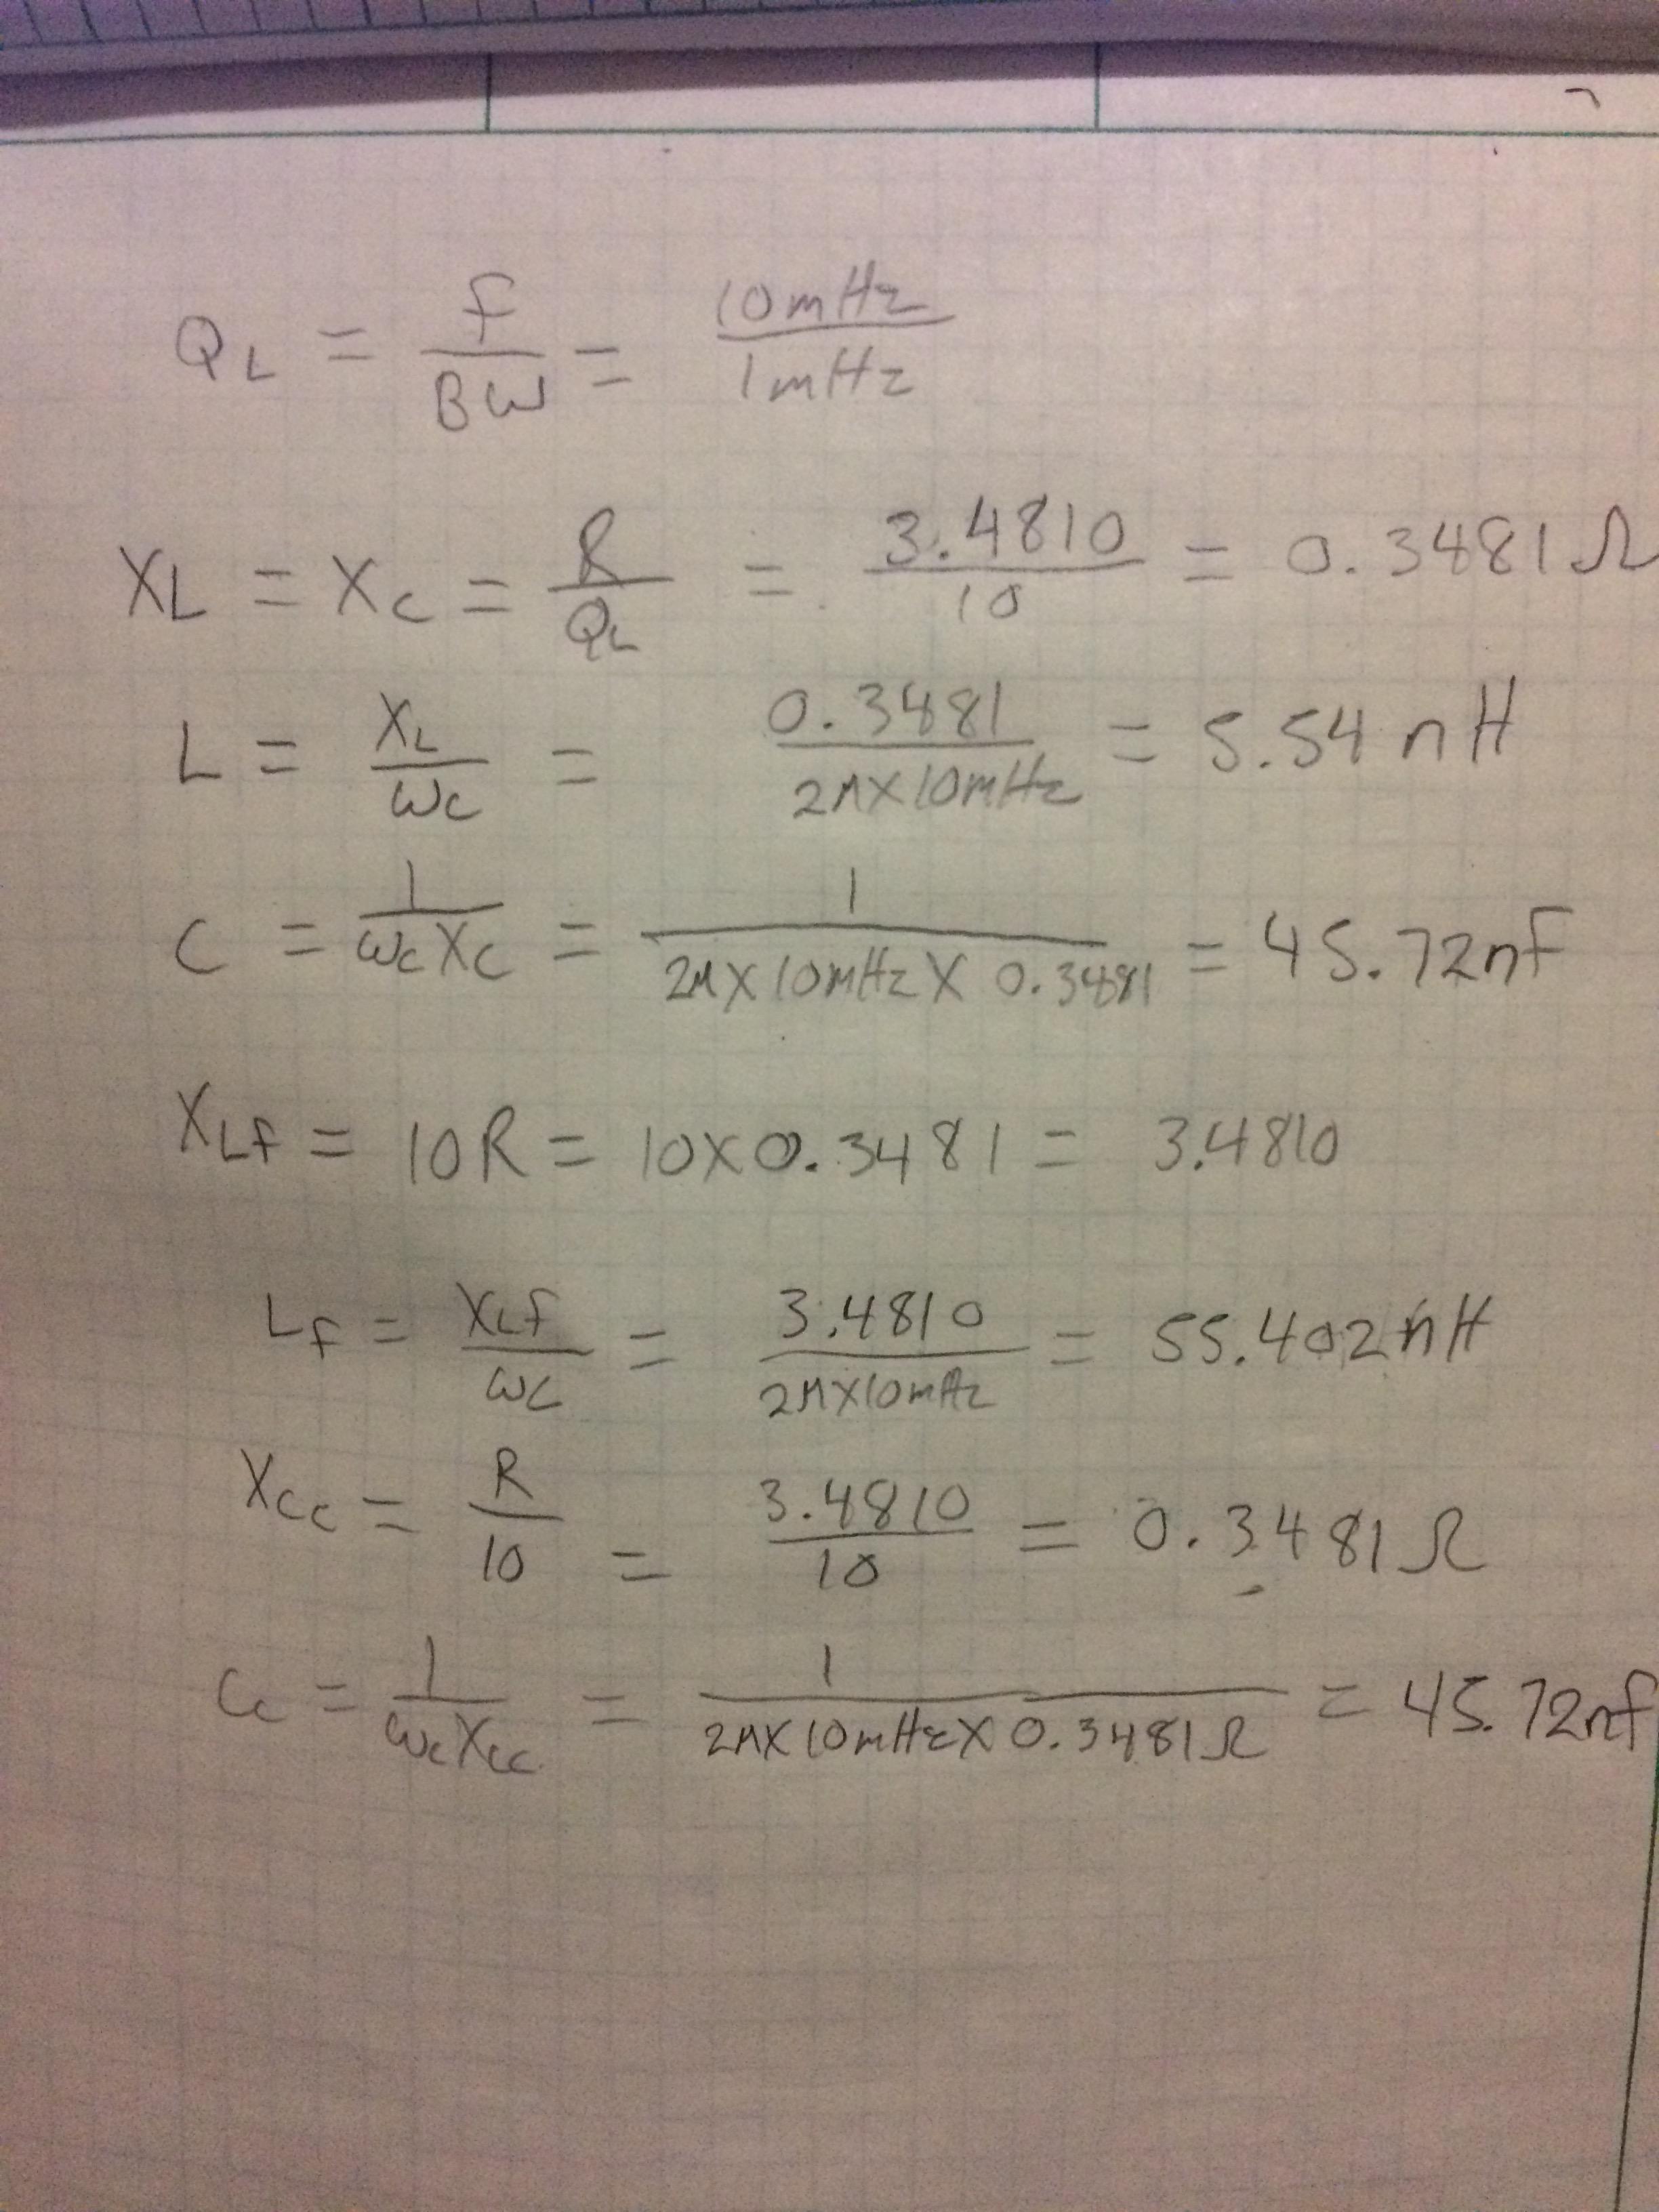 QL = f/BW = 10mHz/1mHz
XL = Xc = R/QL = 3.4810/10 = 0.3481Ω
L = XL/ωc = 0.3481/2π×10mHz = 5.54 nH
C = 1/ωcXc = 1/2π×10mHz×0.3481 = 45.72nF
XLf = 10R = 10×0.3481 = 3.4810
Lf = XLf/ωc = 3.4810/2π×10mHz = 55.402nH
Xcc = R/10 = 3.4810/10 = 0.3481Ω
Cc = 1/ωcXcc = 1/2π×10mHz×0.3481Ω = 45.72nf